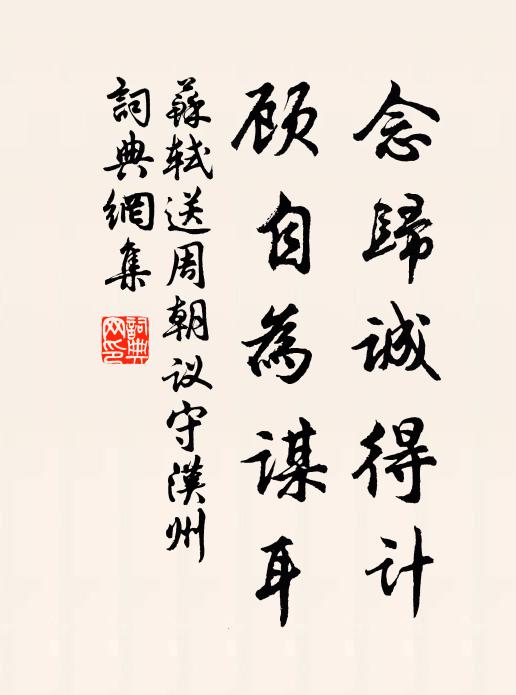 念歸誠得計
顾自為謀耳
蘇軾送周朝议守漢州
詞典網集
詞典
网印